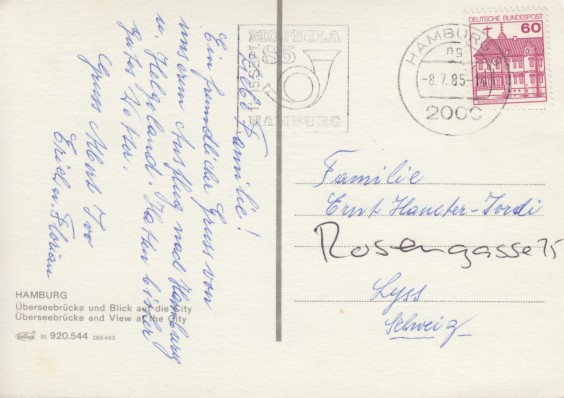 Liebe Familie!
Ein freundlicher Gruss von
unserm Ausflug nach Hamburg
u. Helgoland. Hatten bisher
gutes Wetter.
Gruss Albert
Erich u. Florian
HAMBURG
Überseebrücke und Blick auf die City
Überseebrücke and View at the City
31 920.544
MOPHILA
85
HAMBURG
HAMBURG
-8.7.85
2000
DEUTSCHE BUNDESPOST
60
Familie
Ernst
Rosengasse 15
Lyss
Schweiz